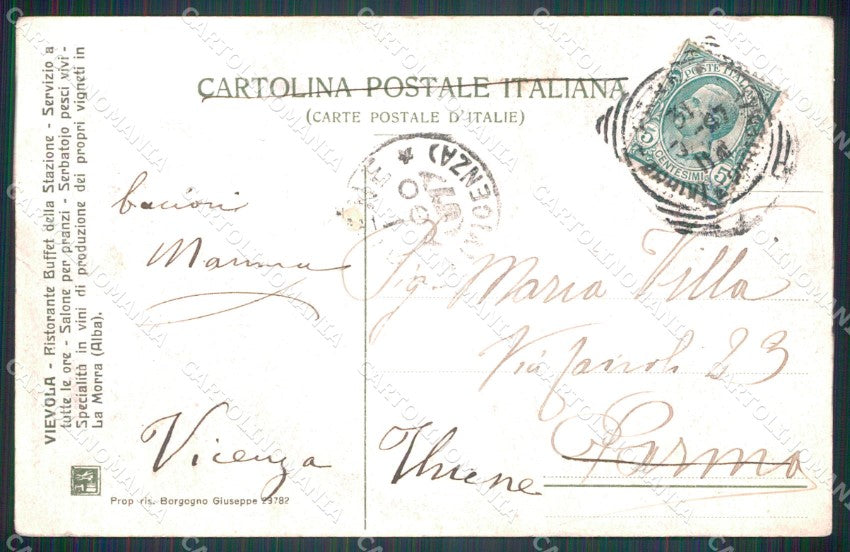 CARTOLINA POSTALE ITALIANA
(CARTE POSTALE D'ITALIE)
VIEVOLA - Ristorante Buffet della Stazione - Servizio a
tutte le ore - Salone per pranzi - Serbatojo pesci vivi -
Specialità in vini di produzione dei propri vigneti in
La Morra (Alba).
bacioni
Mamma
Vicenza
Prop. ris. Borgogno Giuseppe 23782
POSTE ITALIANE
5 CENTESIMI 5
(VICENZA)
Sig. Maria Villa
Via 23
Parma
Thiene
CARTOLINOMANIA